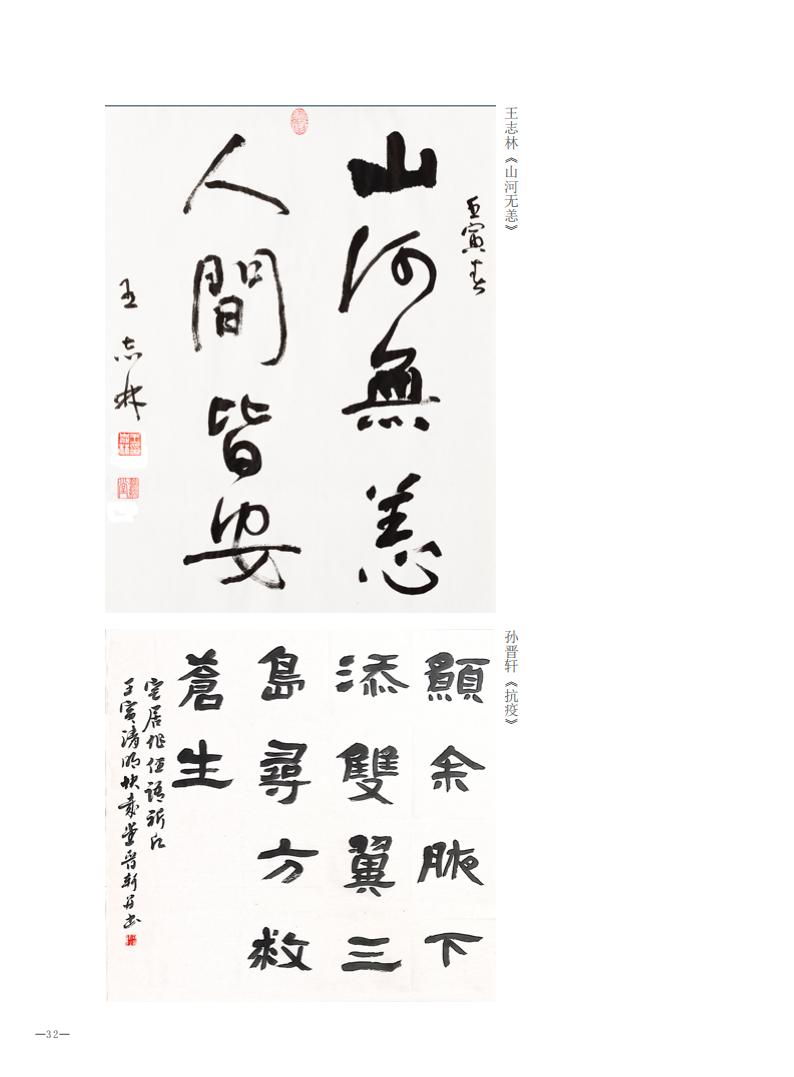 壬寅春
山河無恙
人間皆安
王志林
王志林《山河无恙》
願余腋下
添雙翼三
島尋方救
蒼生
宅居作伍語祈
壬寅清明快哉堂晋轩并书
孙晋轩《抗疫》
—32—